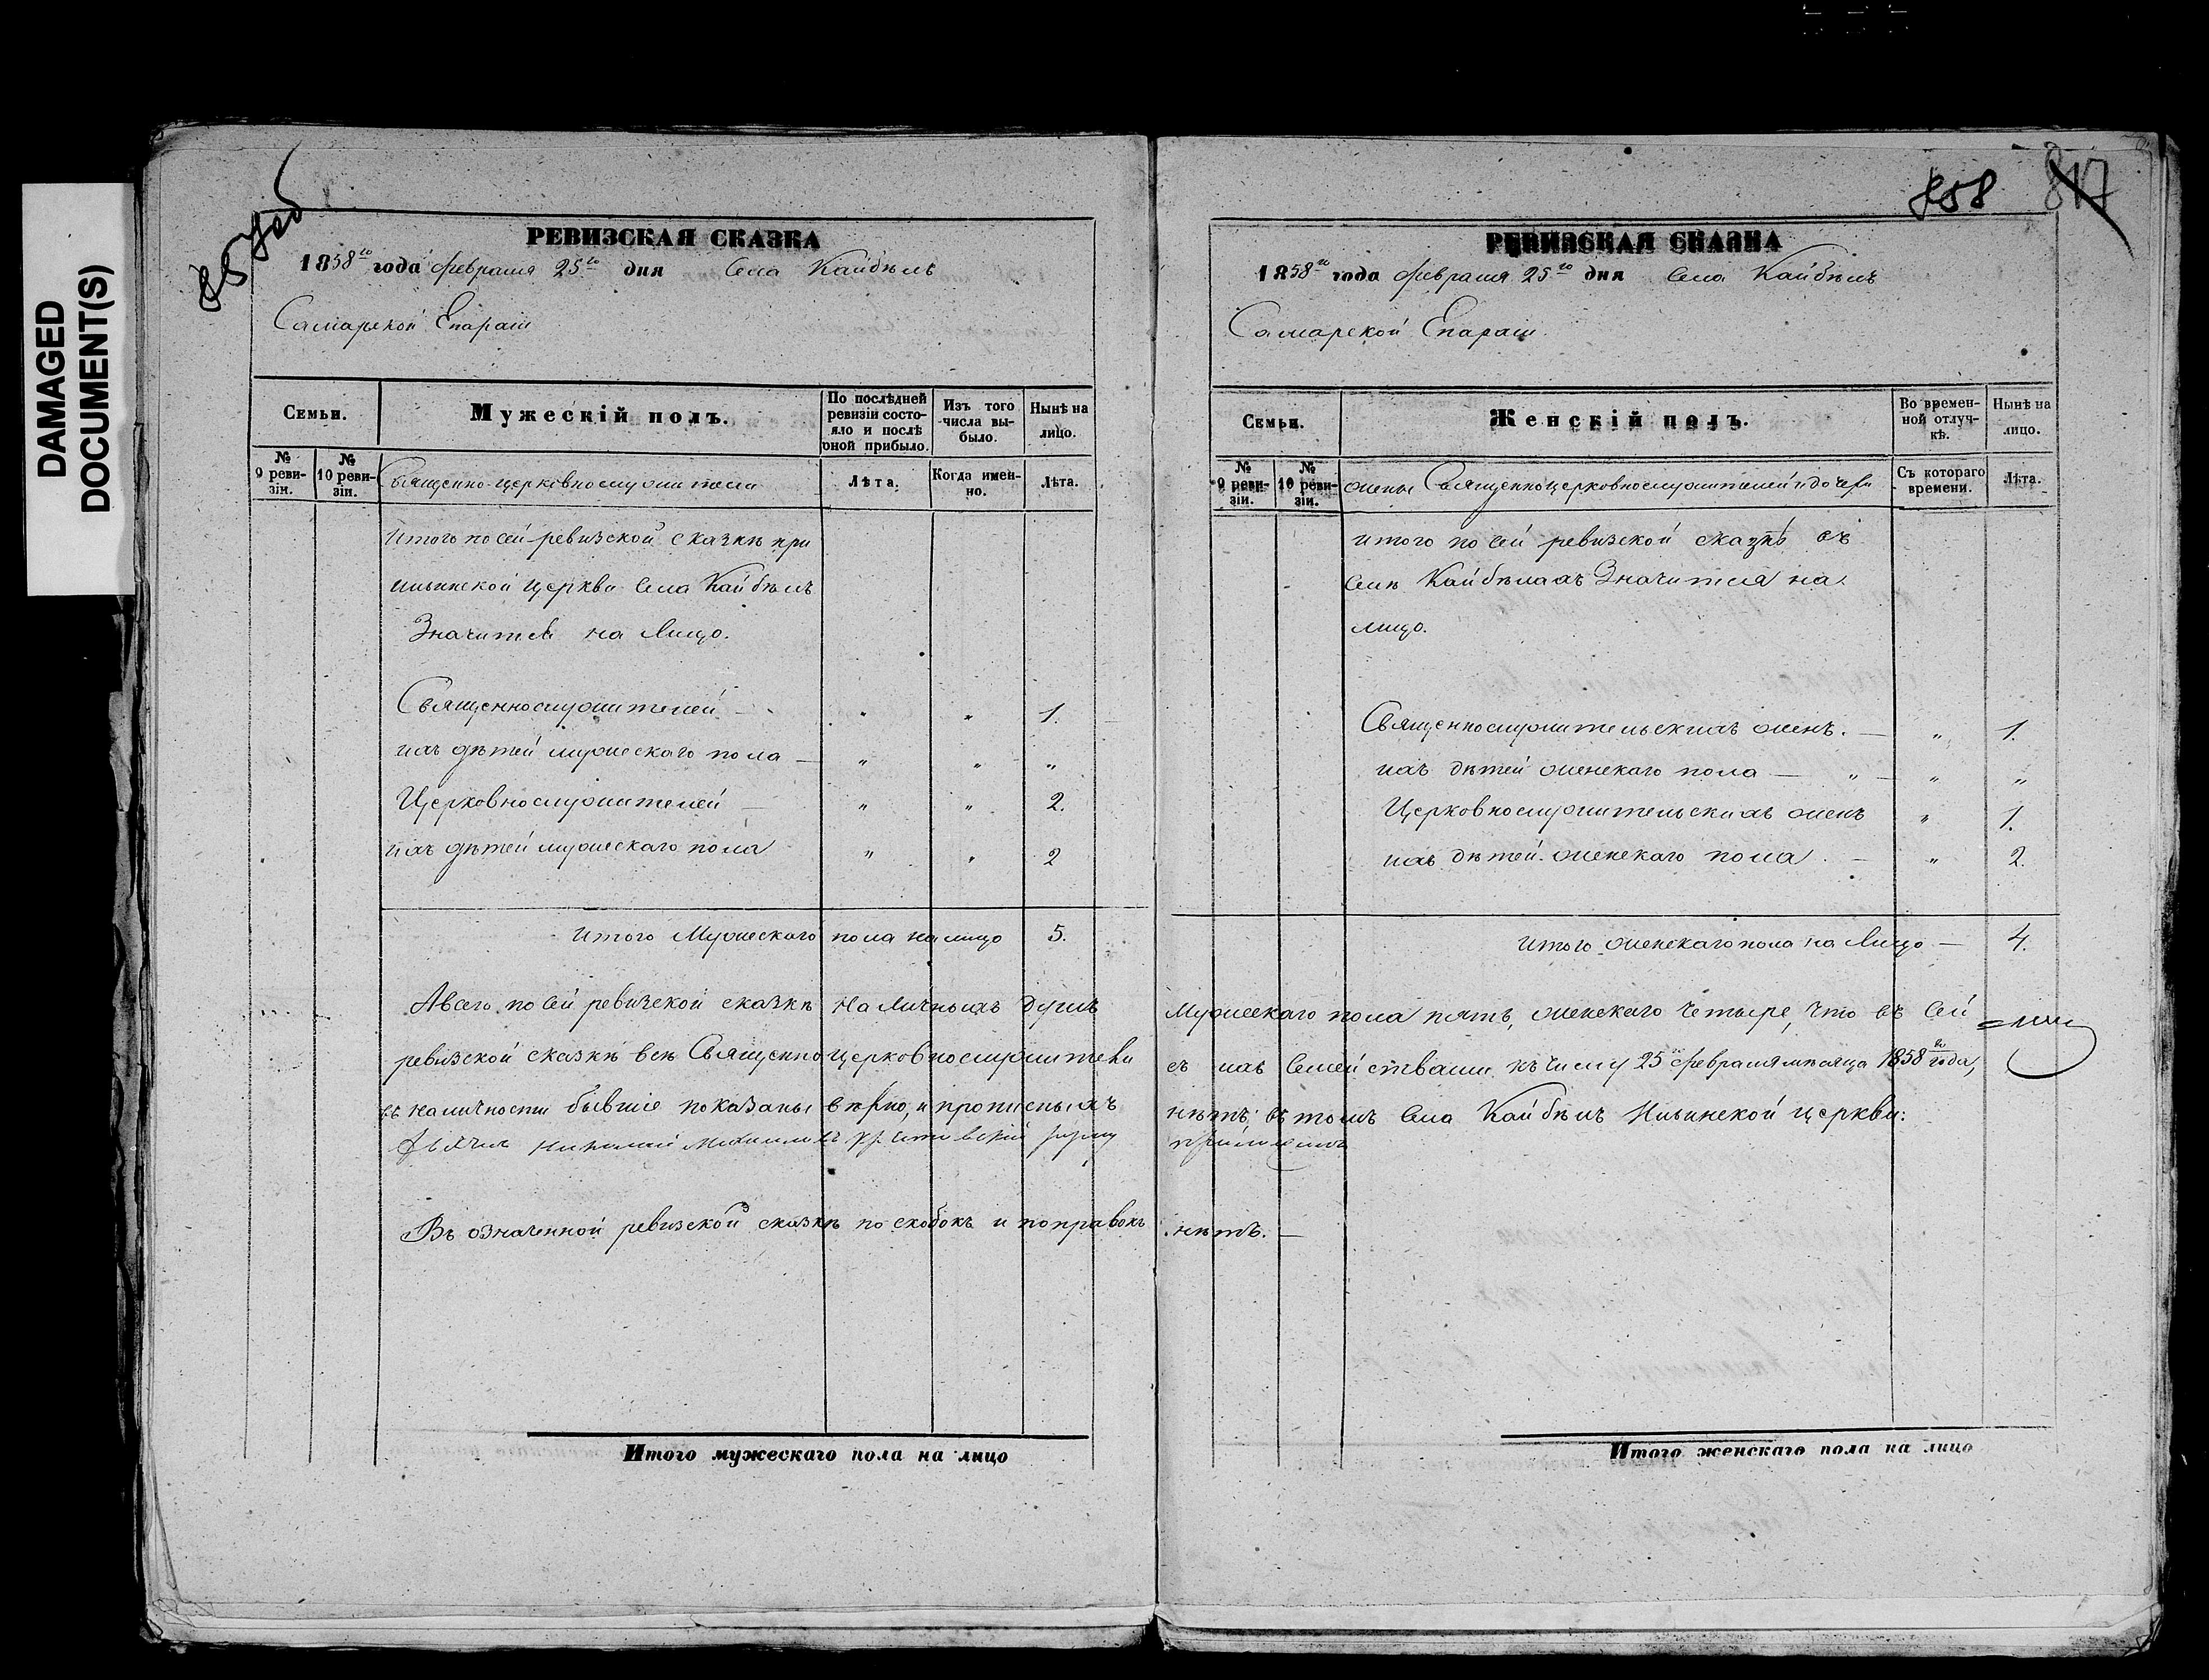 DAMAGED
DOCUMENT(S)
РЕВИЗСКАЯ СКАЗКА
1858го года февраля 25го дня Села Кайбѣлъ
Самарской Епархіи
Семьи.
Мужескій полъ.
По послѣдней ревизіи состояло и послѣ оной прибыло.
Изъ того числа выбыло.
Нынѣ на лицо.
№ 9 ревизіи.
№ 10 ревизіи.
Священно-церковнослужители
Лѣта.
Когда именно.
Лѣта.
Итого по сей ревизской сказкѣ при
Ильинской церкви Села Кайбѣлъ
Значится на Лицо.
Священнослужителей — " " 1.
ихъ дѣтей мужескаго пола — " " "
Церковнослужителей — " " 2.
ихъ дѣтей мужескаго пола " " 2
Итого Мужескаго пола на лицо 5.
858 817
РЕВИЗСКАЯ СКАЗКА
1858го года февраля 25го дня Села Кайбѣлъ
Самарской Епархіи.
Семьи.
Женскій полъ.
Во временной отлучкѣ.
Нынѣ на лицо.
№ 9 ревизіи.
№ 10 ревизіи.
жены Священноцерковнослужителей и дочери
Съ котораго времени.
Лѣта.
итого по сей ревизской сказкѣ въ
Селѣ Кайбѣлахъ Значится на
лицо.
Священнослужительскихъ женъ. — " 1.
ихъ дѣтей женскаго пола — " — " "
Церковнослужительскихъ женъ " 1.
ихъ дѣтей женскаго пола. — " 2.
итого женскаго пола на Лицо — 4.
А всего по сей ревизской сказкѣ На Личныхъ душъ Мужескаго пола пять, женскаго четыре, что въ сей
ревизской сказкѣ всѣ Священноцерковнослужители съ ихъ Семействами къ числу 25 февраля мѣсяца 1858го года,
въ наличности бывшіе показаны вѣрно, и прописныхъ нѣтъ; въ томъ Села Кайбѣлъ Ильинской церкви:
Дьячекъ Николай руку приложилъ
Въ означенной ревизской сказкѣ по скобокъ и поправокъ нѣтъ. —
Итого мужескаго пола на лицо
Итого женскаго пола на лицо